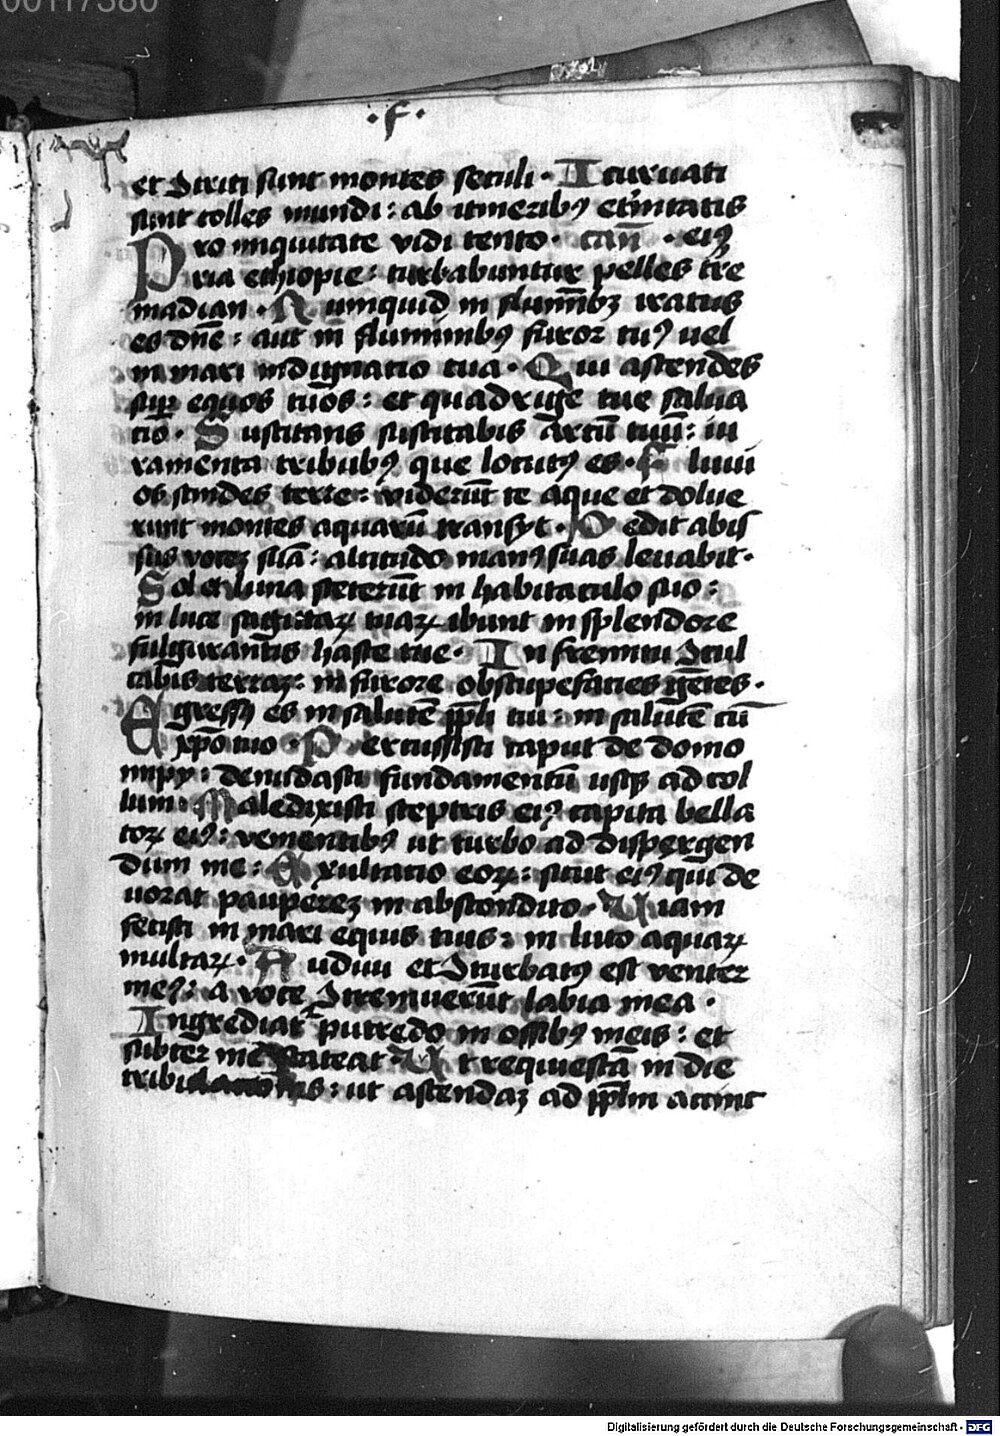 00117380
·f·
et ɔtriti sunt montes seculi · Incuruati
sunt colles mundi : ab itineribꝰ et̾nitatis
Pro iniquitate vidi tento · can̄ · eiꝰ
ria ethiopie : turbabuntur pelles t̾re
madian · Numquid in flum̄ibꝫ iratus
es dn̄e : aut in fluminibꝰ furor tuꝰ uel
in mari indignatio tua · Qui ascendes
suꝑ equos tuos : et quadrige tue salua
tio · Suscitans suscitabis arcū tuū : iu
ramenta tribubꝰ que locutꝰ es · Fluuii
os scindes terre : viderūt te aque et dolue
runt montes aquarū transyt · Dedit abis
sus voceꝫ suā : altitudo manꝰ suas leuabit ·
Sol et luna steterūt in habitaculo suo :
in luce sagittaꝝ tuaꝝ ibunt in splendore
fulgurantis haste tue · In fremitu ɔcul
cabis terraꝫ : in furore obstupefacies gentes ·
Egressꝰ es in salutē ppl̄i tui : in salutē cū
xp̄o tuo · Percussisti caput de domo
impy : denudasti fundamentū usqꝫ ad col
lum · Maledixisti sceptris eiꝰ capita bella
toꝝ eiꝰ : venientibꝰ ut turbo ad dispergen
dum me : Exultatio eoꝝ : sicut eiꝰ qui de
uorat paupereꝫ in abscondito · Uiam
fecisti in mari equis tuis : in luto aquaꝝ
multaꝝ · Audiui et ɔturbatꝰ est venter
meꝰ : a voce ɔtremuerūt labia mea ·
Ingrediat̾ putredo in ossibꝰ meis : et
subter me scateat Ut requiescā in die
tribulationis : ut ascendaꝫ ad ppl̄m accinc
Digitalisierung gefördert durch die Deutsche Forschungsgemeinschaft · DFG